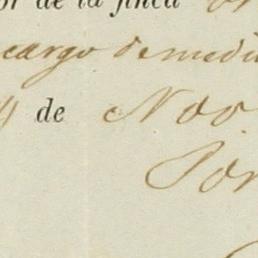 or de la finca
cargo de medi
de Nov.
Por